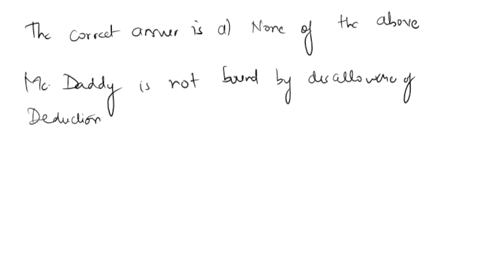 The correct answer is d) None of the above
Mc Daddy is not bound by disallowence of
Deduction